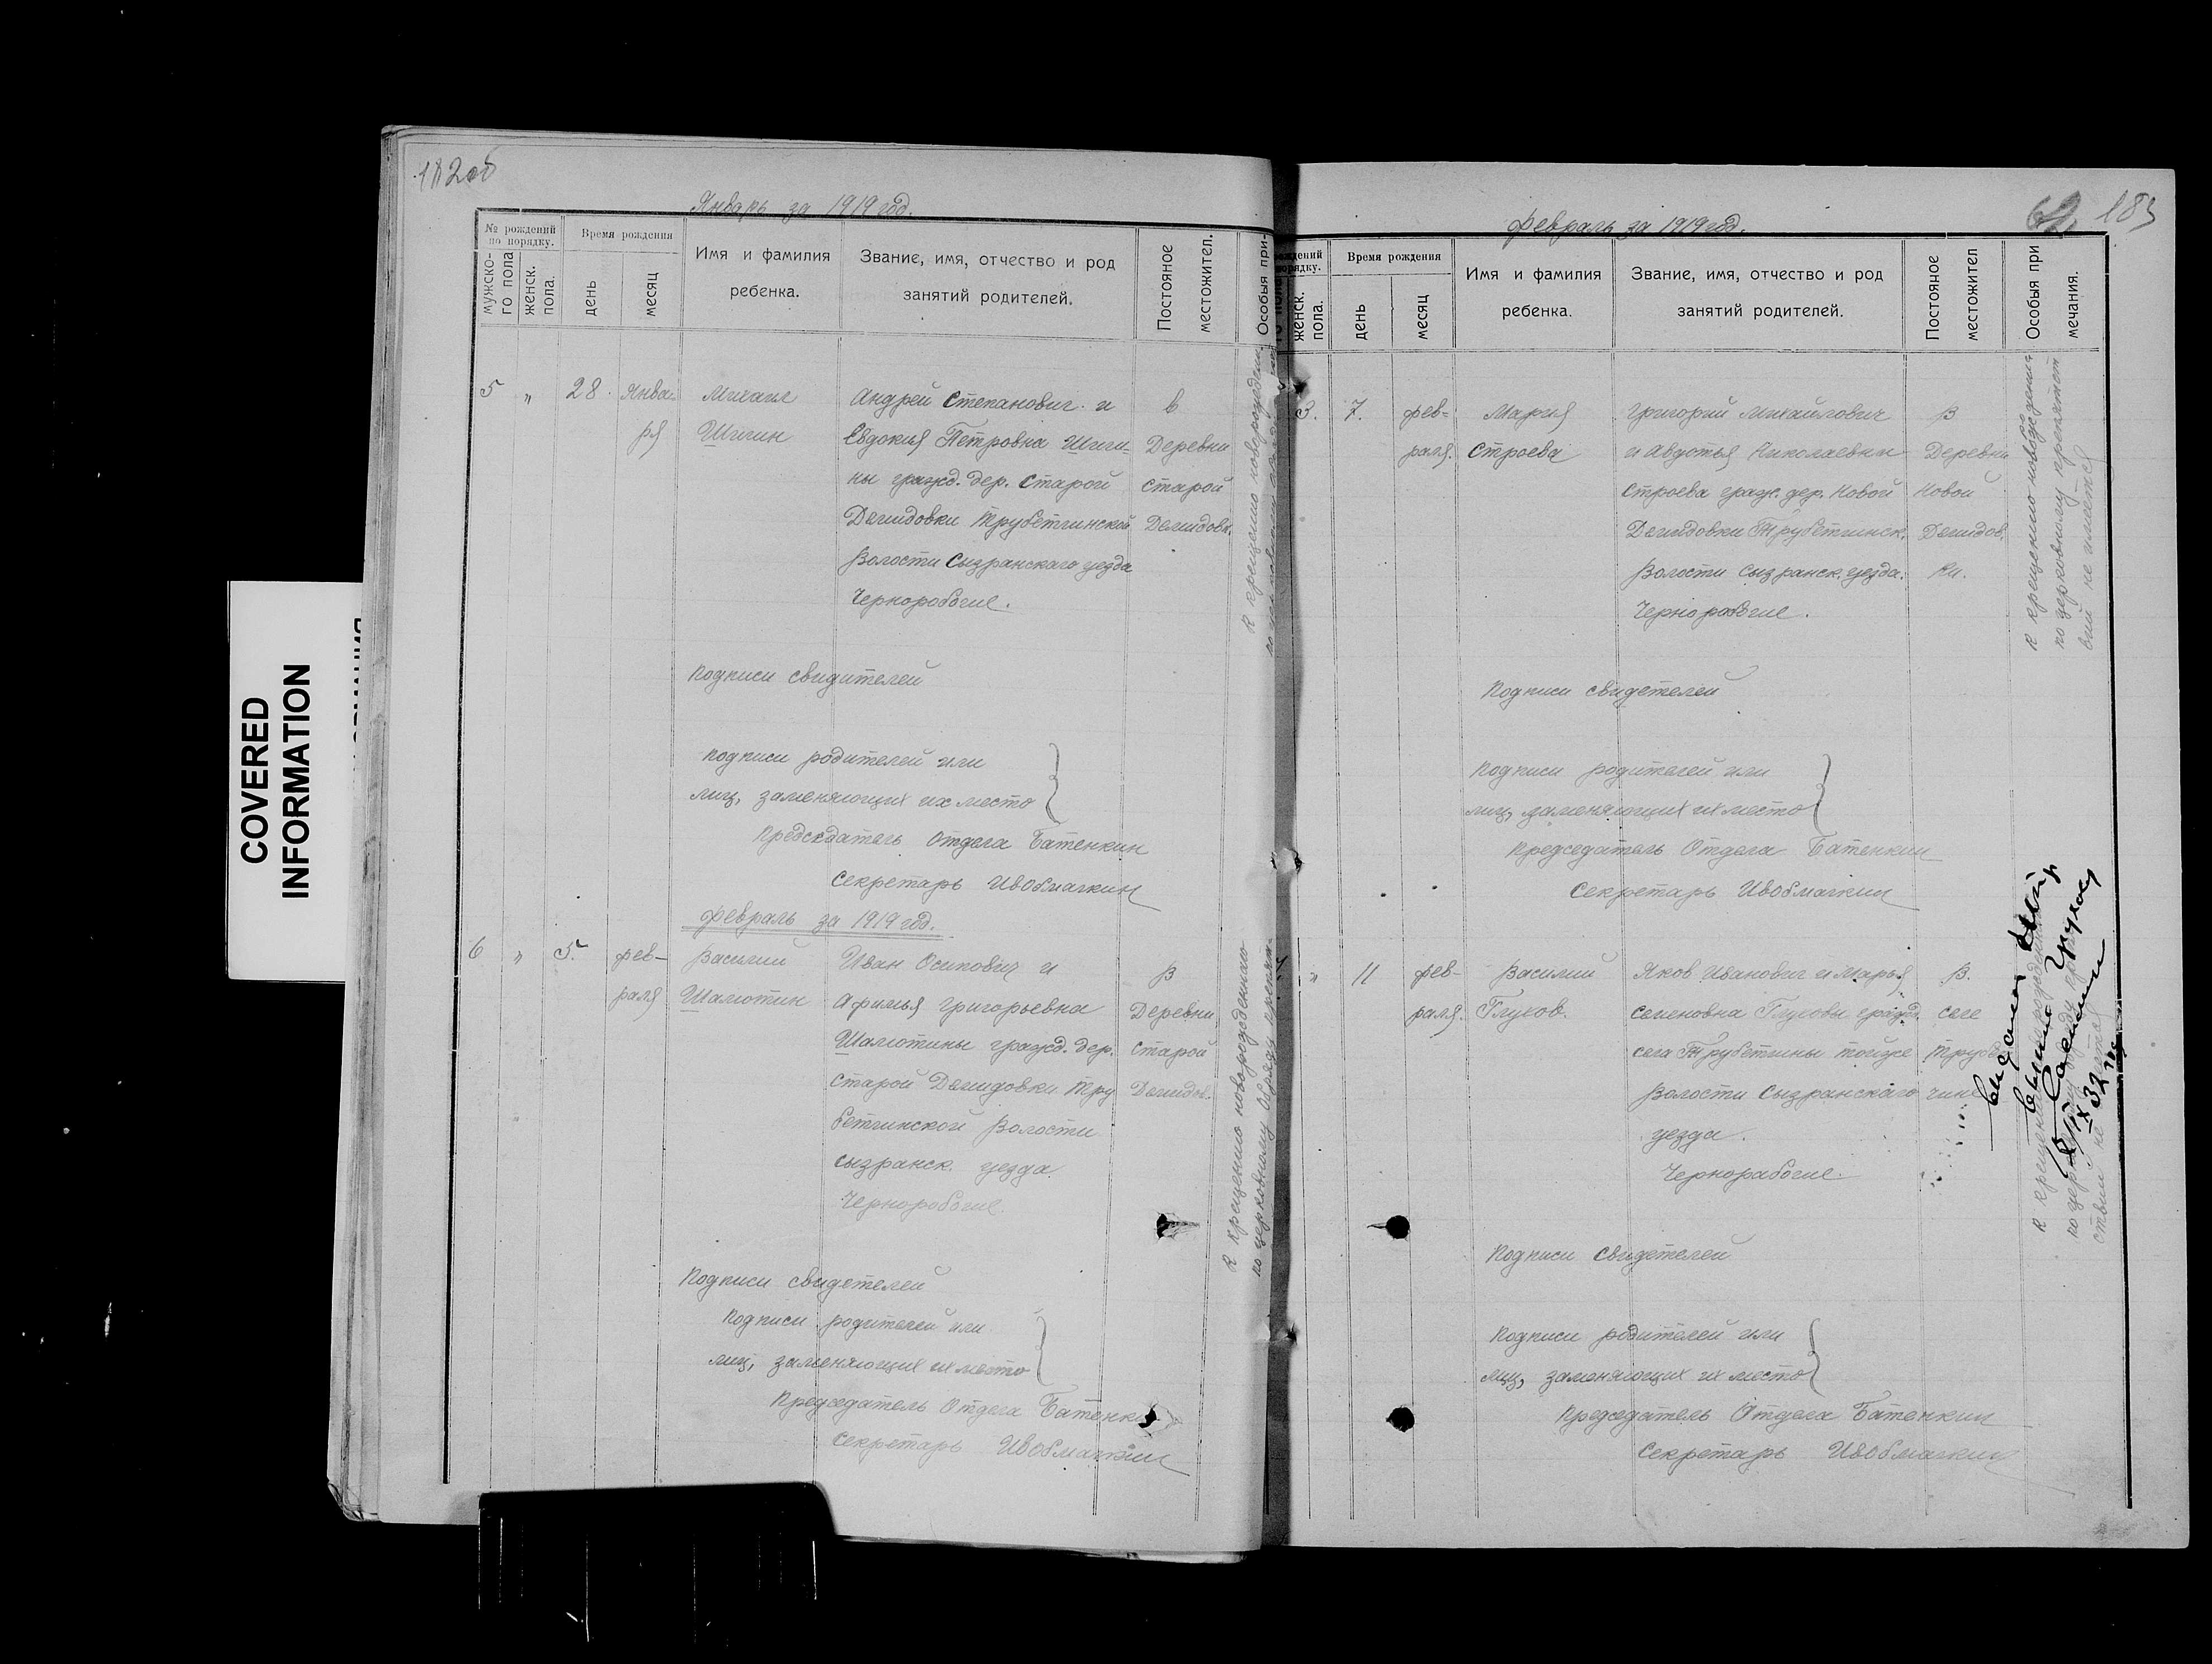 182об
Январь за 1919 год.
№ рождений по порядку.
мужско-го пола
женск. пола.
Время рождения
день
месяц
Имя и фамилия ребенка.
Звание, имя, отчество и род занятий родителей.
Постояное местожител.
Особыя при-
5 " 28. Янва- Михаил Андрей Степанович и в
ря Шигин Евдокия Петровна Шиги- Деревни
ны гражд. дер. Старой Старой
Демидовки Трубетчинской Демидовк.
Волости Сызранскаго уезда
Чернорабочие.
К крещению новорожден.
Подписи свидителей
Подписи родителей или
лиц, заменяющих их место
Председатель Отдела Батенкин
Секретарь
Февраль за 1919 год.
6 " 5. фев- Василий Иван Осипович и В
раля Шалютин Афимья Григорьевна Деревни
Шалютины гражд. дер. Старой
Старой Демидовки Тру Демидов.
бетчинской Волости
сызранск. уезда.
Чернорабочие.
К крещению новорожденнаго
по церковному обряду препят-
Подписи свидетелей
Подписи родителей или
лиц, заменяющих их место
Председатель Отдела Батенки
Секретарь
183
Февраль за 1919 год.
женск. пола.
Время рождения
день
месяц
Имя и фамилия ребенка.
Звание, имя, отчество и род занятий родителей.
Постояное местожител
Особыя при мечания.
3. 7. фев- Мария Григорий Михайлович В
раля. Строева и Авдотья Николаевны Деревни
Строева граж. дер. Новой Новой
Демидовки Трубетчинск. Демидов.
Волости Сызранск. уезда. ки.
Чернорабочие.
К крещению новорждения
по церковному препятст
вий не имеется
Подписи свидетелей
Подписи родителей или
лиц, заменяющих их место
Председатель Отдела Батенкин
Секретарь
" 11 фев- Василий Яков Иванович и Марья В.
раля. Глухов. Семеновна Глуховы гражд. селе
села Трубетчины тойже Трубе
Волости Сызранскаго чине
уезда.
Чернорабочие.
К крещению
по церковному обряду
ствий не имеется
Подписи свидетелей
Подписи родителей или
лиц, заменяющих их место
Председатель Отдела Батенкин
Секретарь
COVERED
INFORMATION